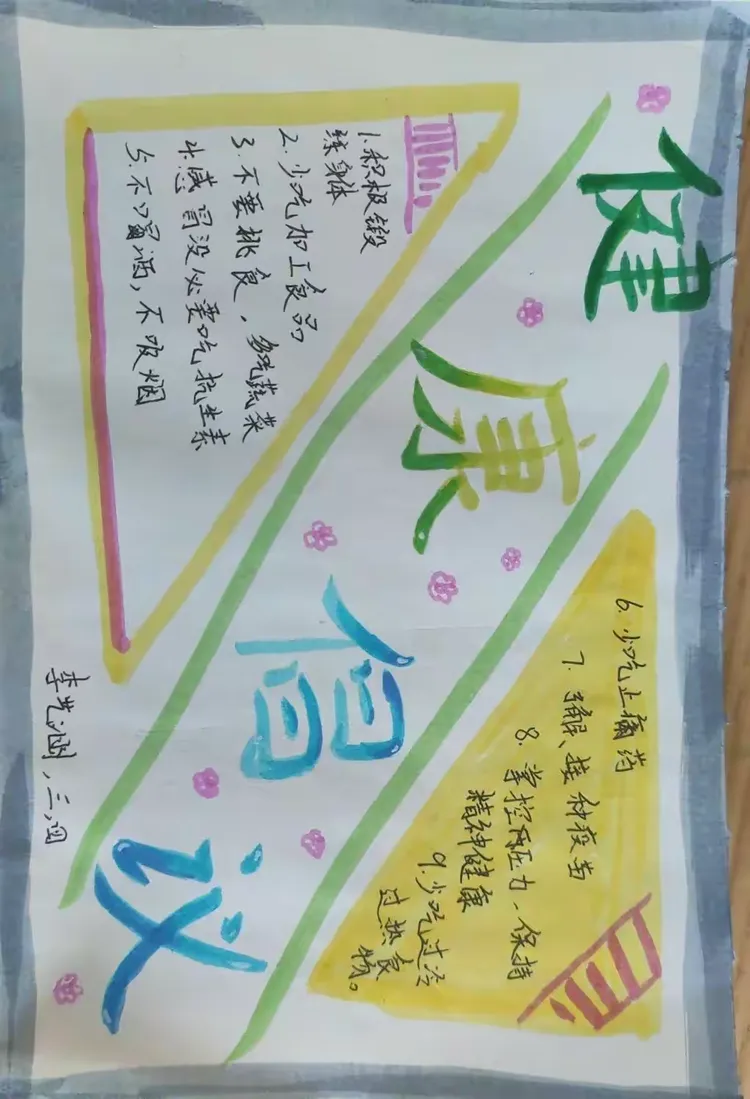 健康倡议
1.积极锻
练身体
2.少吃加工食品
3.不要挑食，多吃蔬菜
4.感冒没必要吃抗生素
5.不酗酒，不吸烟
6.少吃止痛药
7.理解、接种疫苗
8.掌控压力、保持
精神健康
9.少吃过冷
过热食
物。
李艺涵，三.四